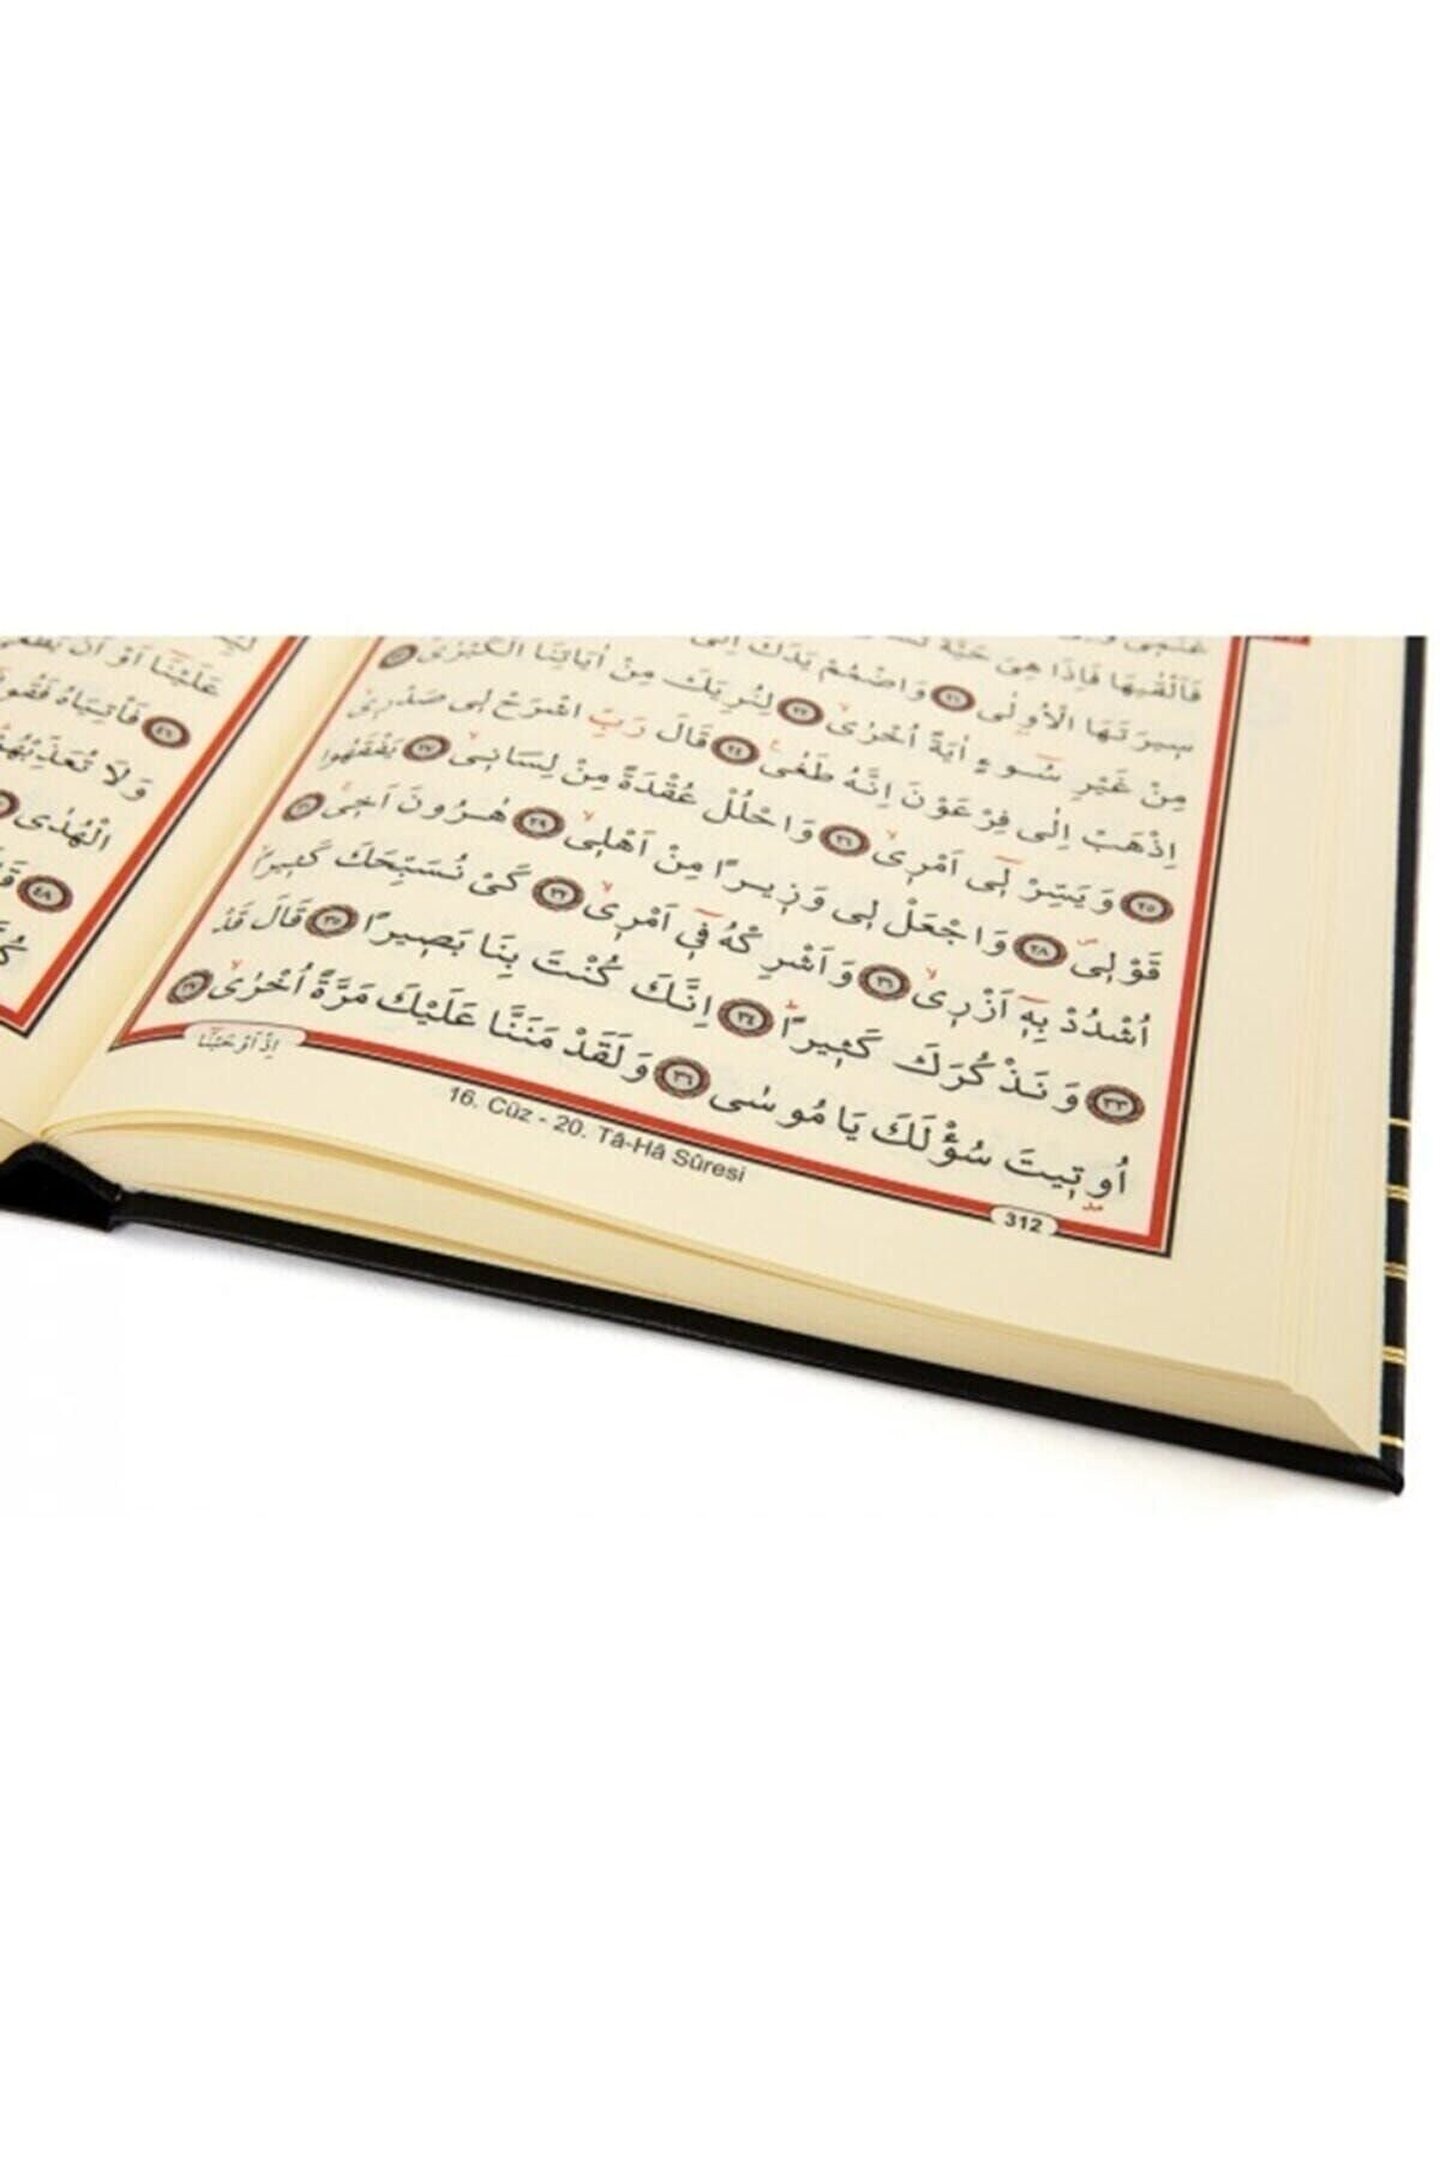 فَاَلْقٰيهَا فَاِذَا هِيَ حَيَّةٌ
سٖيرَتَهَا الْاُولٰى ﴿٢١﴾ وَاضْمُمْ يَدَكَ اِلٰى
مِنْ غَيْرِ سُٓوءٍ اٰيَةً اُخْرٰىۙ ﴿٢٢﴾ لِنُرِيَكَ مِنْ اٰيَاتِنَا الْكُبْرٰىۚ ﴿٢٣﴾
اِذْهَبْ اِلٰى فِرْعَوْنَ اِنَّهُ طَغٰى۟ ﴿٢٤﴾ قَالَ رَبِّ اشْرَحْ لٖي صَدْرٖيۙ
﴿٢٥﴾ وَيَسِّرْ لٖٓي اَمْرٖيۙ ﴿٢٦﴾ وَاحْلُلْ عُقْدَةً مِنْ لِسَانٖيۙ ﴿٢٧﴾ يَفْقَهُوا
قَوْلٖيۖ ﴿٢٨﴾ وَاجْعَلْ لٖي وَزٖيرًا مِنْ اَهْلٖيۙ ﴿٢٩﴾ هٰرُونَ اَخٖيۚ ﴿٣٠﴾
اُشْدُدْ بِهٖٓ اَزْرٖيۙ ﴿٣١﴾ وَاَشْرِكْهُ فٖٓي اَمْرٖيۙ ﴿٣٢﴾ كَيْ نُسَبِّحَكَ كَثٖيرًاۙ
﴿٣٣﴾ وَنَذْكُرَكَ كَثٖيرًاۜ ﴿٣٤﴾ اِنَّكَ كُنْتَ بِنَا بَصٖيرًا ﴿٣٥﴾ قَالَ قَدْ
اُو۫تٖيتَ سُؤْلَكَ يَا مُوسٰى ﴿٣٦﴾ وَلَقَدْ مَنَنَّا عَلَيْكَ مَرَّةً اُخْرٰىۙ ﴿٣٧﴾
اِذْ اَوْحَيْنَٓا
312
16. Cüz - 20. Tâ-Hâ Sûresi
عَلَيْنَٓا اَوْ اَنْ يَطْغٰى
﴿٤٦﴾ فَأْتِيَاهُ فَقُو
وَلَا تُعَذِّبْهُمْ
الْهُدٰى
﴿٤٨﴾